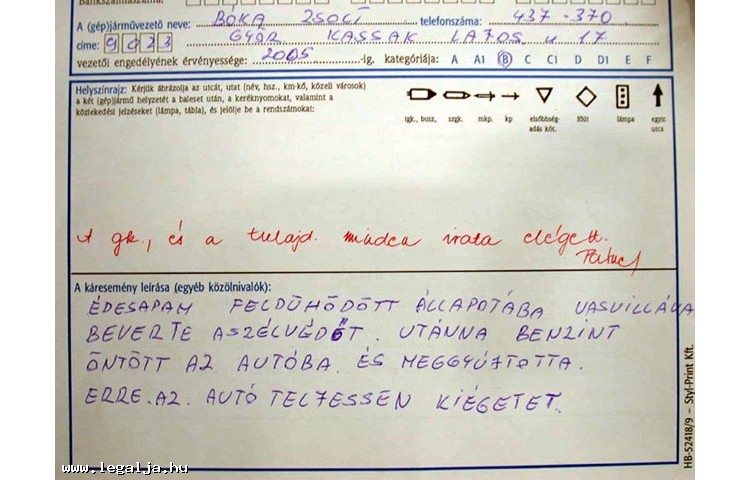 Bankszámlaszáma:
A (gép)járművezető neve: BOKA ZSOLT telefonszáma: 437-370
címe: 9023 GYŐR KASSAK LAJOS u 17
vezetői engedélyének érvényessége: 2005 -ig. kategóriája: A A1 B C C1 D D1 E F
Helyszínrajz: Kérjük ábrázolja az utcát, utat (név, hsz., km-kő, közeli városok)
a két (gép)jármű helyzetét a baleset után, a keréknyomokat, valamint a
közlekedési jelzéseket (lámpa, tábla), és jelölje be a rendszámokat:
tgk., busz, szgk. mkp. kp elsőbbség-adás köt. főút lámpa egyir. utca
A gk., és a tulajd. minden irata elégett.
A káresemény leírása (egyéb közölnivalók):
ÉDESAPAM FELDÜHÖDÖTT ÁLLAPOTÁBA VASVILLÁVA
BEVERTE ASZÉLVÉDŐT. UTÁNNA BENZINT
ÖNTÖTT AZ AUTÓBA. ÉS MEGGYÚJTOTTA.
ERRE. AZ. AUTÓ TELJESSEN KIÉGETET.
HB-52418/9 – Styl-Print Kft.
www.legalja.hu